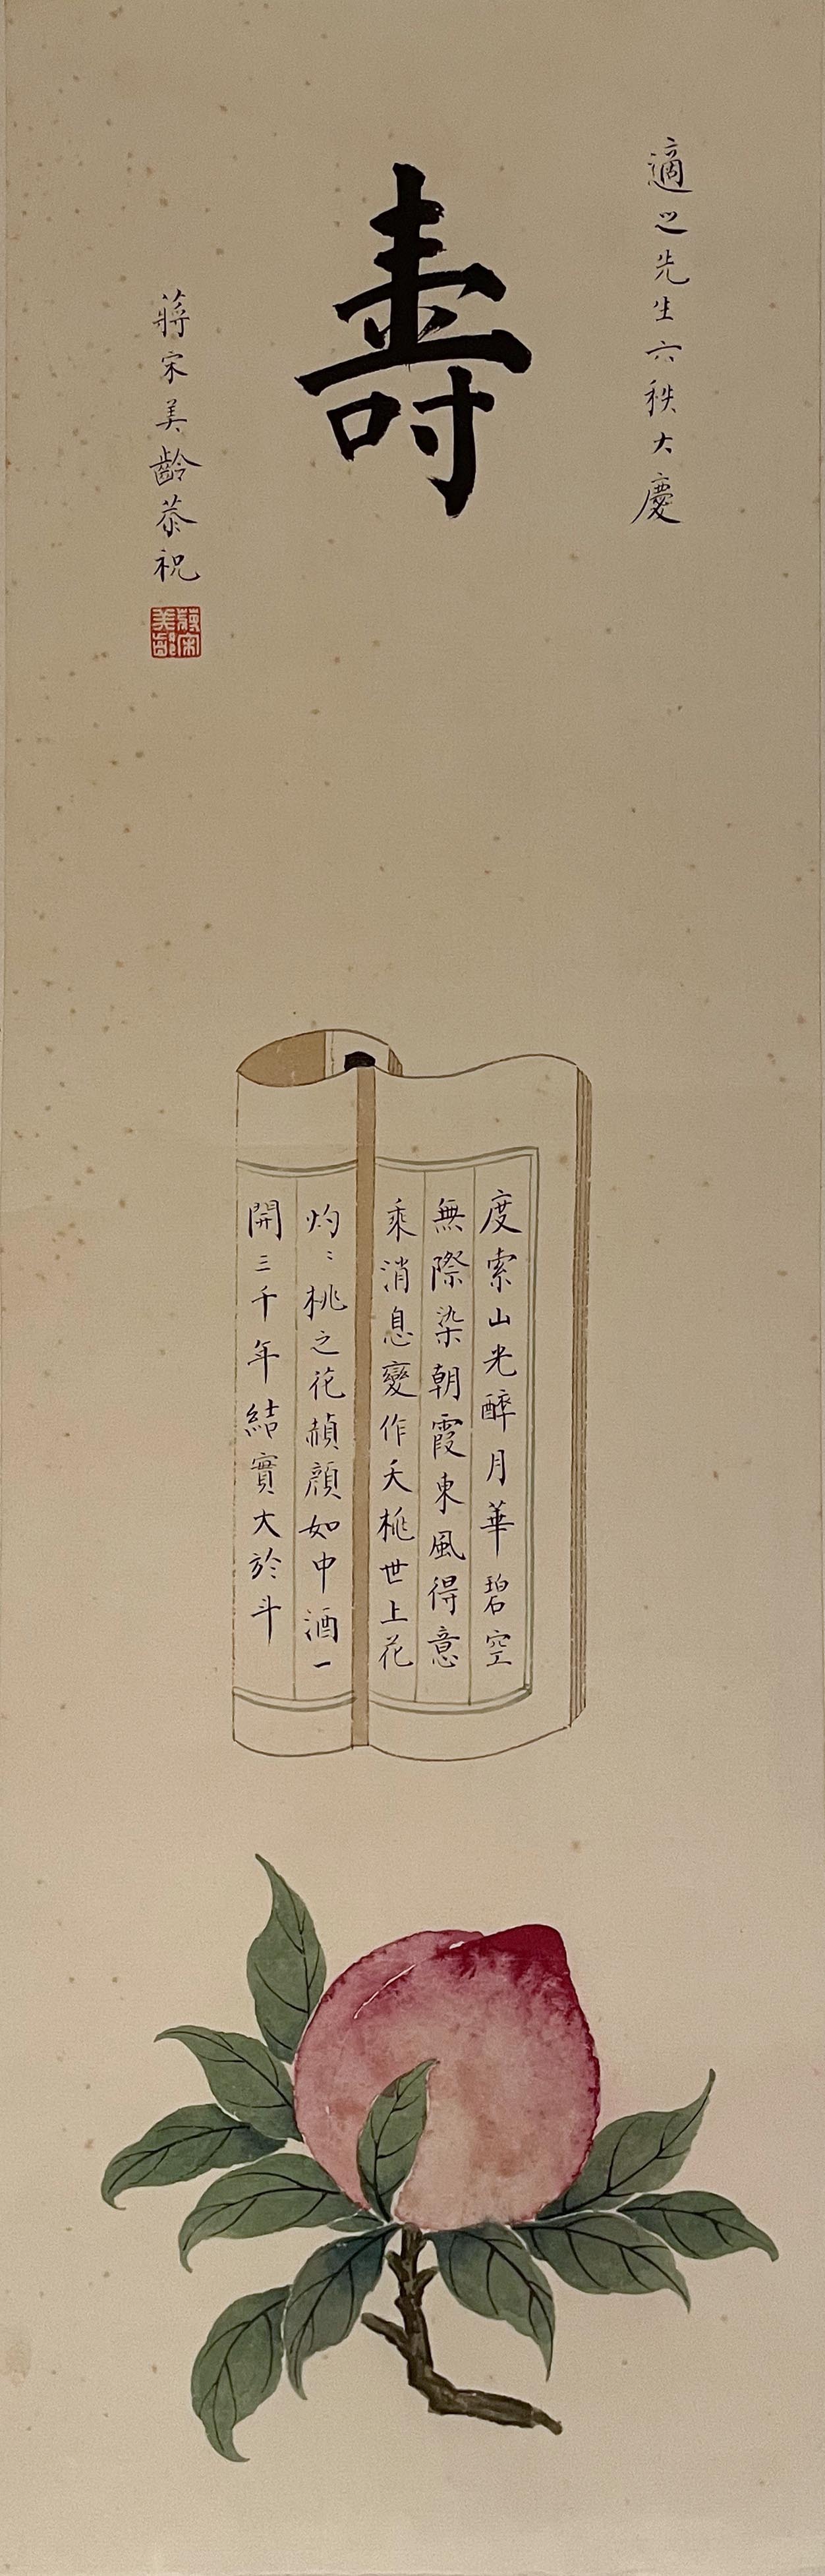 適之先生六秩大慶
壽
蔣宋美齡恭祝
蔣宋美齡
度索山光醉月華碧空
無際染朝霞東風得意
乘消息變作夭桃世上花
灼〻桃之花赬顏如中酒一
開三千年結實大於斗